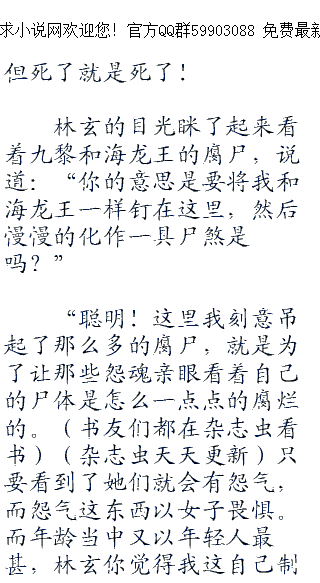 求小说网欢迎您! 官方QQ群59903088 免费最新
但死了就是死了!
林玄的目光眯了起来看
着九黎和海龙王的腐尸,说
道:“你的意思是要将我和
海龙王一样钉在这里,然后
慢慢的化作一具尸煞是
吗?”
“聪明!这里我刻意吊
起了那么多的腐尸,就是为
了让那些怨魂亲眼看着自己
的尸体是怎么一点点的腐烂
的。(书友们都在杂志虫看
书)(杂志虫天天更新)只
要看到了她们就会有怨气,
而怨气这东西以女子畏惧。
而年龄当中又以年轻人最
甚,林玄你觉得我这自己制